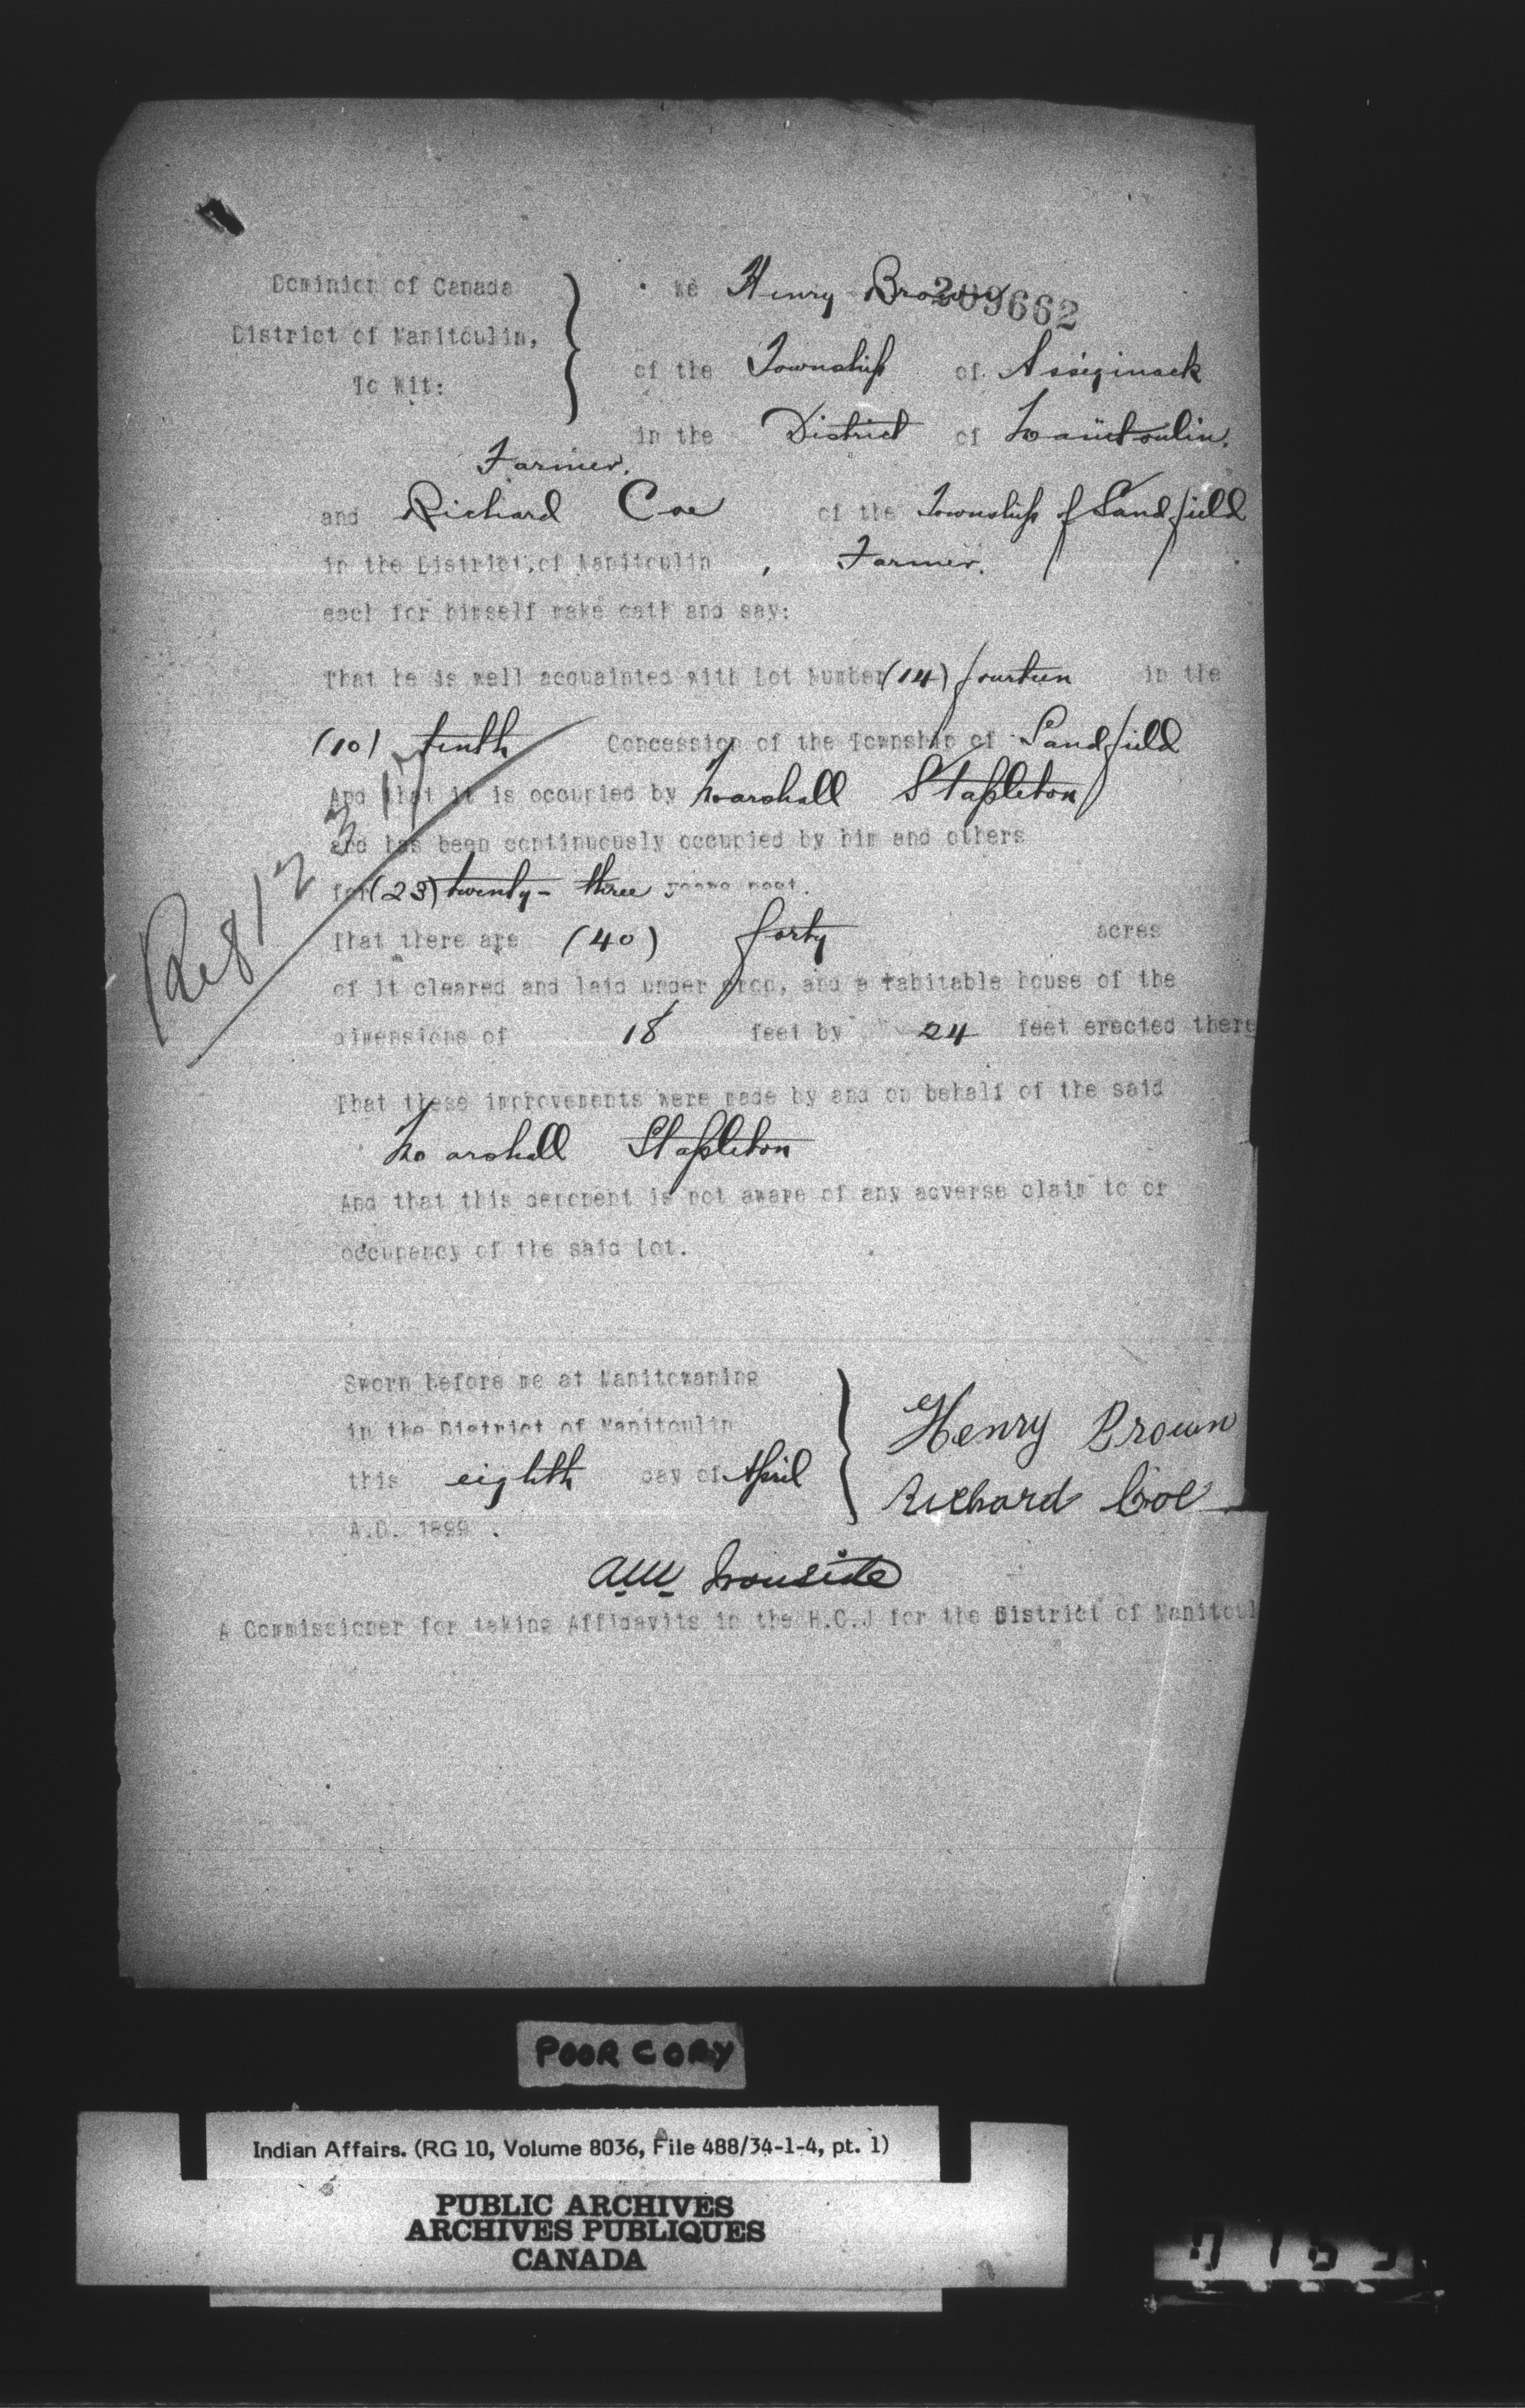 Dominion of Canada
District of Manitoulin,
To Wit:
We Henry Brown
209662
of the Township of Assiginack
in the District of Manitoulin.
Farmer.
and Richard Coe of the Township of Sandfield
in the District of Manitoulin , Farmer.
each for himself make oath and say:
That he is well acquainted with Lot Number (14) fourteen in the
(10) tenth Concession of the Township of Sandfield
And that it is occupied by Marshall Stapleton
and has been continuously occupied by him and others
for (23) twenty-three years past.
That there are (40) forty acres
of it cleared and laid under crop, and a habitable house of the
dimensions of 18 feet by 24 feet erected there
That these improvements were made by and on behalf of the said
Marshall Stapleton
And that this deponent is not aware of any adverse claim to or
occupancy of the said Lot.
Sworn before me at Manitowaning
in the District of Manitoulin
this eighth day of April
A.D. 1899.
Henry Brown
Richard Coe
AW Ironside
A Commissioner for taking Affidavits in the H.C.J for the District of Manitoul
POOR COPY
Indian Affairs. (RG 10, Volume 8036, File 488/34-1-4, pt. 1)
PUBLIC ARCHIVES
ARCHIVES PUBLIQUES
CANADA